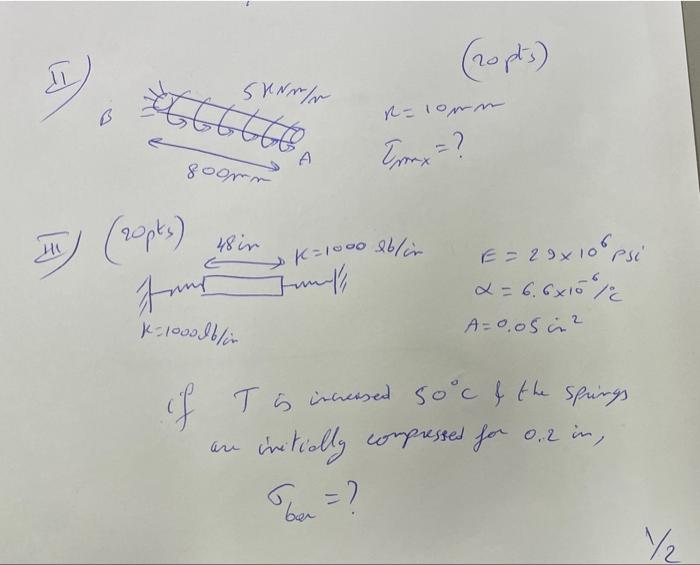 II) (20pts)
5 KNm/m
B
A
800mm
r = 10mm
τmax = ?
III) (20pts)
48in
K=1000 lb/in
K=1000lb/in
E = 29x10⁶ psi
α = 6.6x10⁻⁶/°c
A = 0.05 in²
if T is increased 50°c & the springs
are initially compressed for 0.2 in,
σbar = ?
1/2